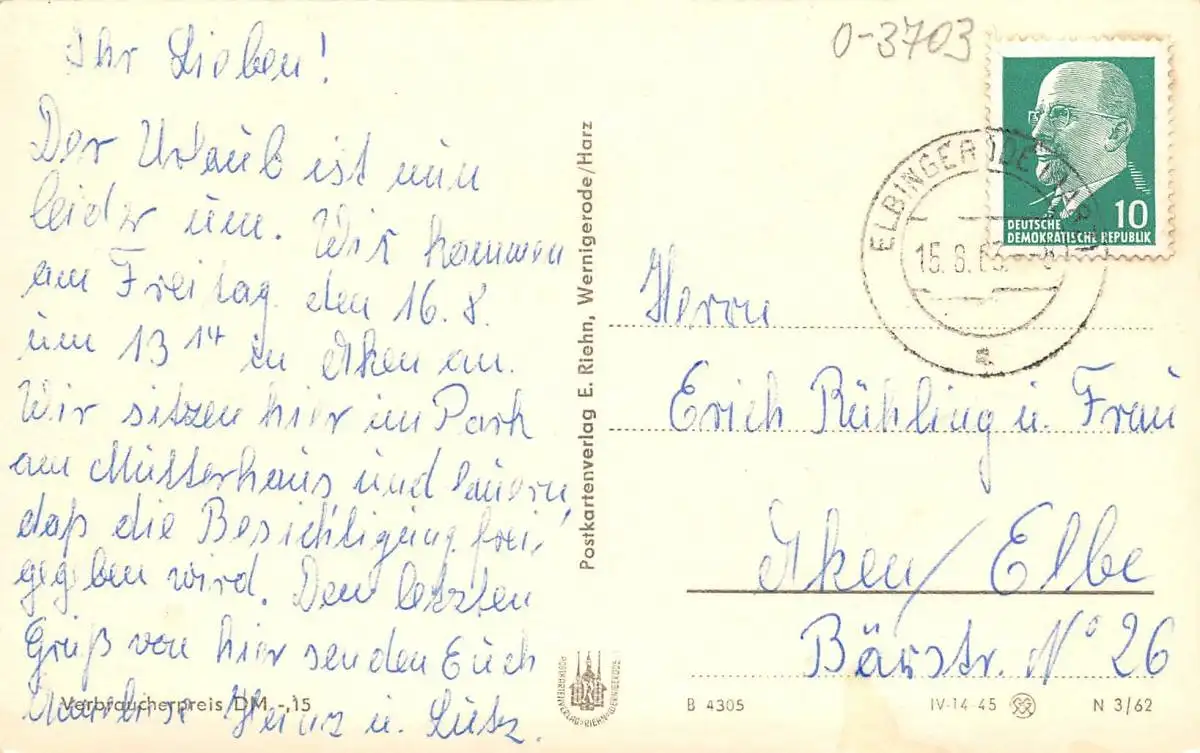 Ihr Lieben!
Der Urlaub ist nun
leider um. Wir kommen
am Freitag den 16.8.
um 13 14 in Aken an.
Wir sitzen hier im Park
am Mutterhaus und lauern,
daß die Besichtigung frei,
gegeben wird. Den letzten
Gruß von hier senden Euch
Heinz u. Lutz.
Verbraucherpreis DM -,15
Postkartenverlag E. Riehn, Wernigerode/Harz
POSTKARTENVERLAG RIEHN WERNIGERODE
0-3703
DEUTSCHE
DEMOKRATISCHE REPUBLIK
10
ELBINGERODE (HARZ)
15.8.63
a
Herrn
Erich Rühling u. Frau
Aken/Elbe
Bärstr. No 26
B 4305
IV-14-45
N 3/62